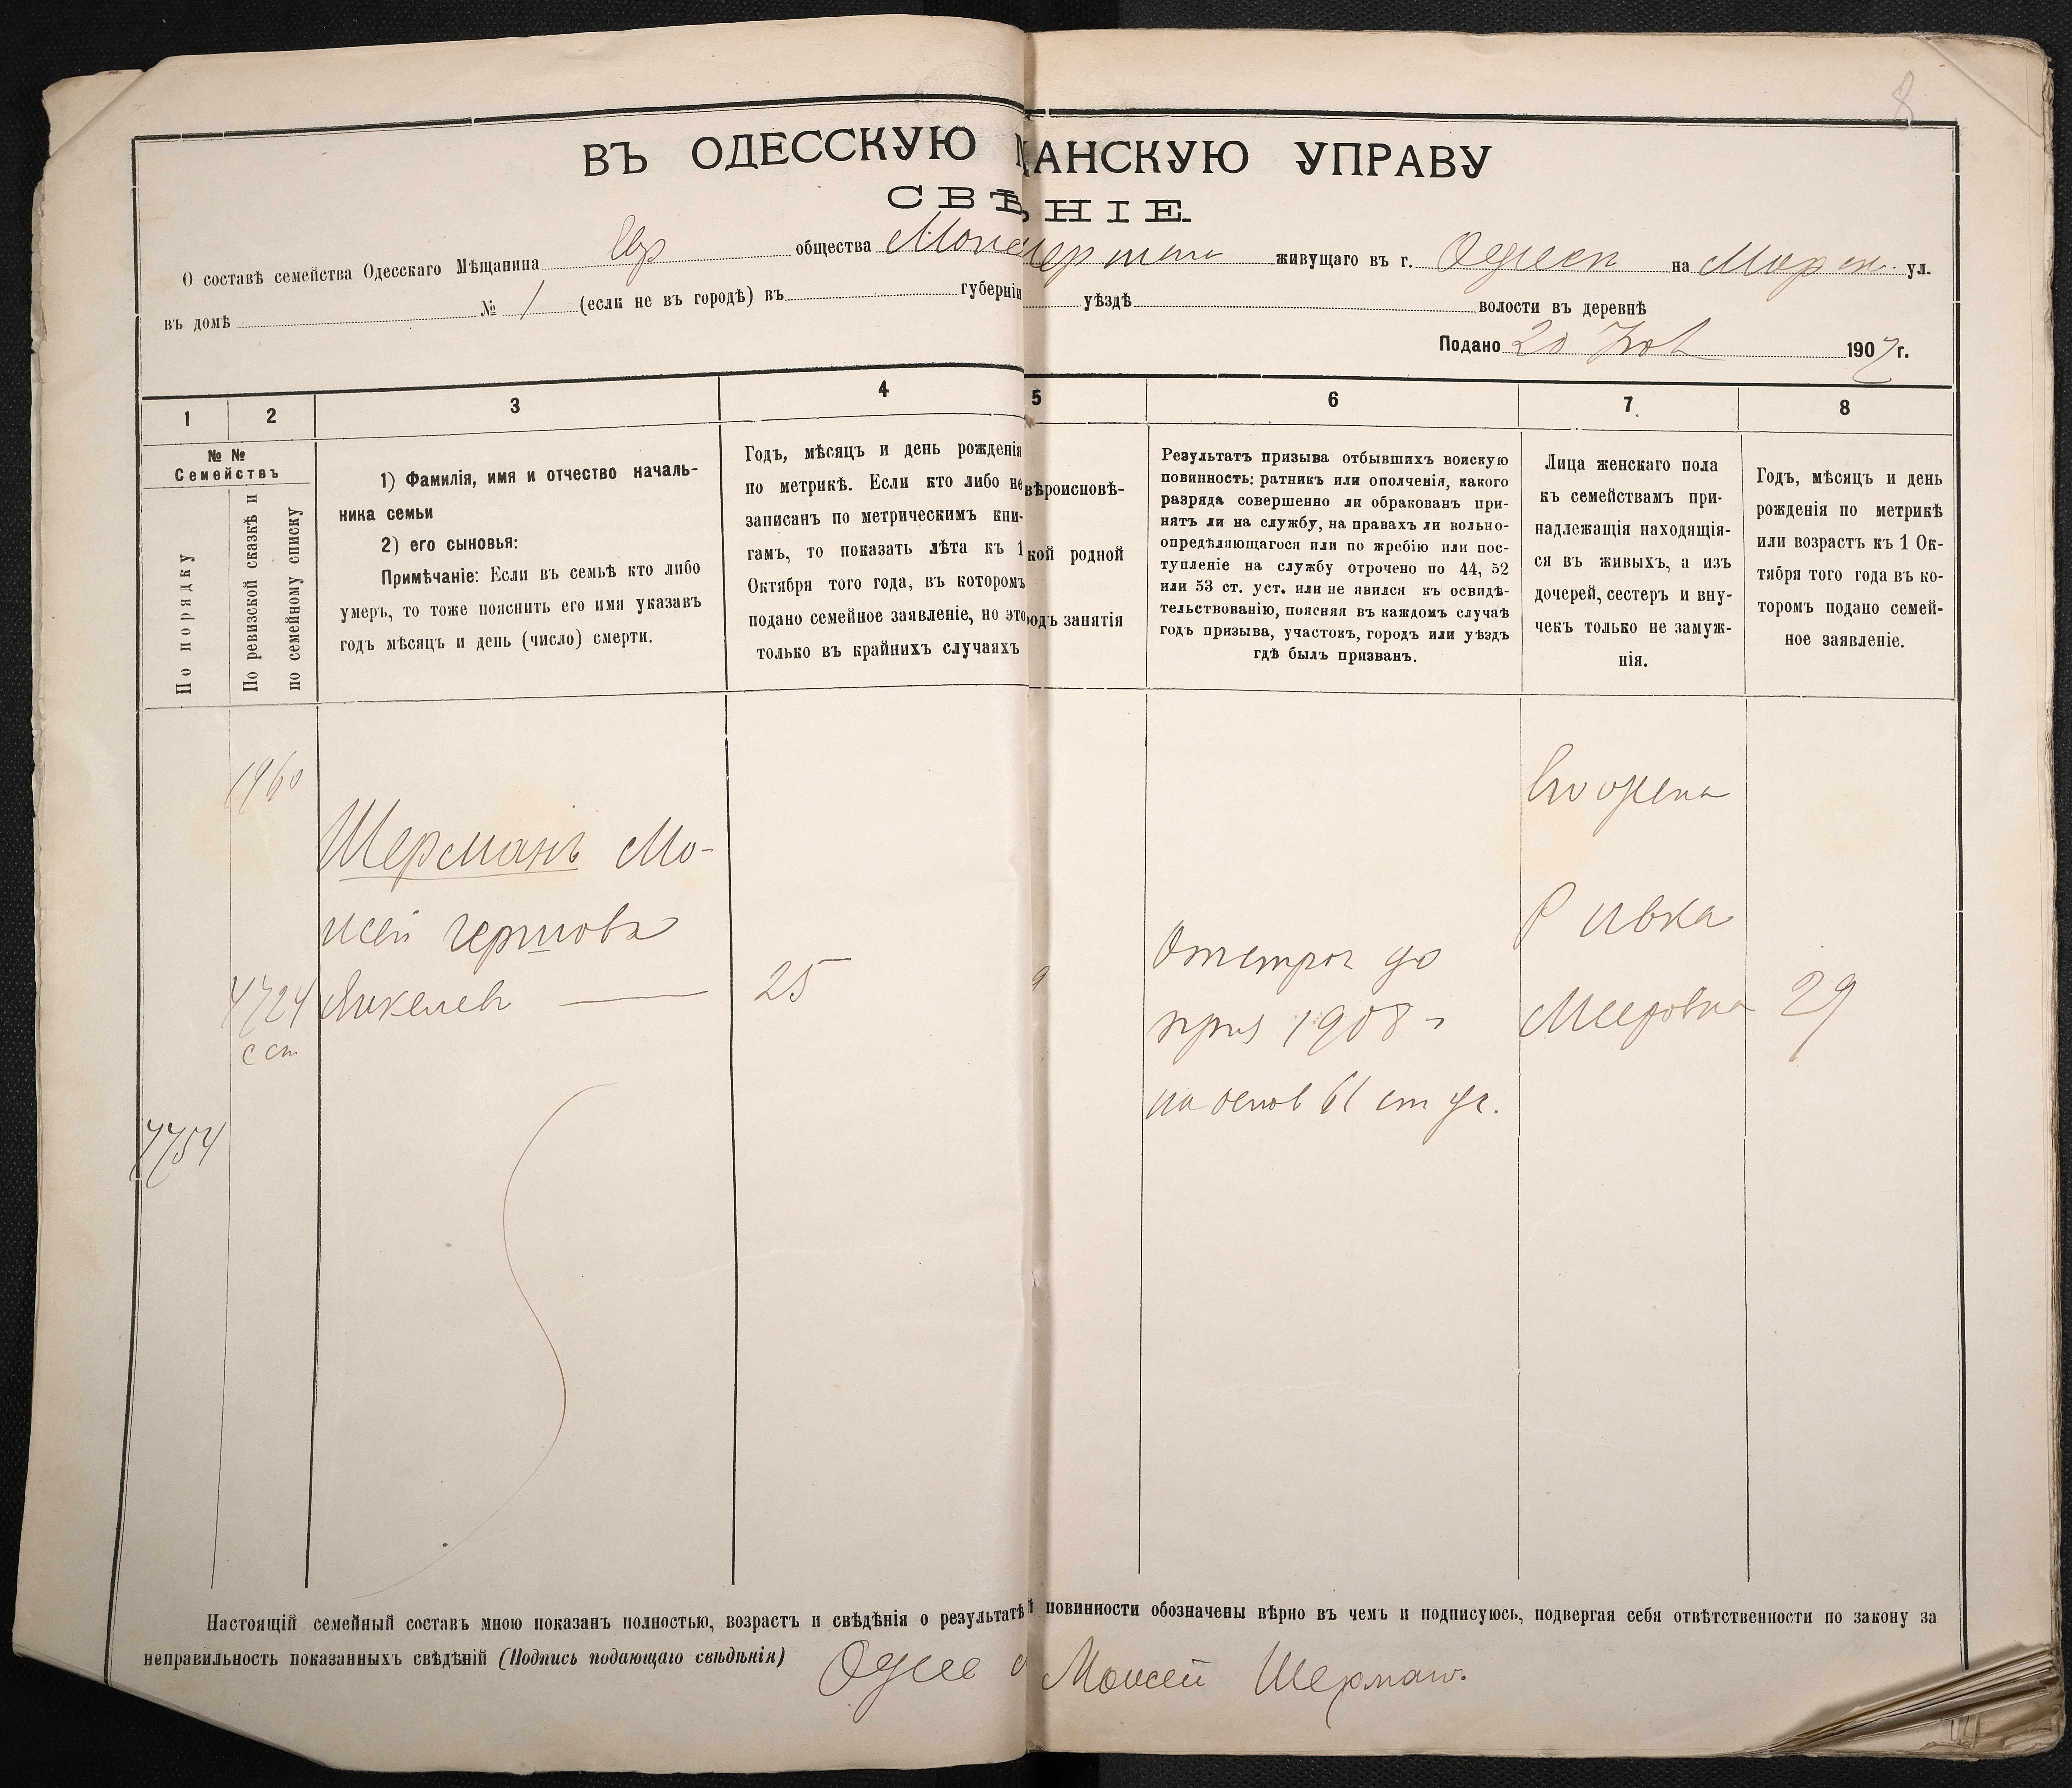 8
ВЪ ОДЕССКУЮ АНСКУЮ УПРАВУ
СВѢ НІЕ
О составѣ семейства Одесскаго Мѣщанина Евр общества живущаго въ г. Одессѣ на ул.
въ домѣ № 1 (если не въ городѣ) въ губерніи уѣздѣ волости въ деревнѣ
Подано 20 1907 г.
1 2 3 4 5 6 7 8
№ №
Семействъ
По порядку
По ревизской сказкѣ и
по семейному списку
1) Фамилія, имя и отчество началь-
ника семьи
2) его сыновья:
Примѣчаніе: Если въ семьѣ кто либо
умеръ, то тоже пояснить его имя указавъ
годъ мѣсяцъ и день (число) смерти.
Годъ, мѣсяцъ и день рожденія
по метрикѣ. Если кто либо не
записанъ по метрическимъ кни-
гамъ, то показать лѣта къ 1
Октября того года, въ которомъ
подано семейное заявленіе, но это
только въ крайнихъ случаяхъ
вѣроисповѣ-
кой родной
одъ занятія
Результатъ призыва отбывшихъ воискую
повинность: ратникъ или ополченія, какого
разряда совершенно ли обракованъ при-
нятъ ли на службу, на правахъ ли вольно-
опредѣляющагося или по жребію или пос-
тупленіе на службу отрочено по 44, 52
или 53 ст. уст. или не явился къ освидѣ-
тельствованію, поясняя въ каждомъ случаѣ
годъ призыва, участокъ, городъ или уѣздъ
гдѣ былъ призванъ.
Лица женскаго пола
къ семействамъ при-
надлежащія находящія-
ся въ живыхъ, а изъ
дочерей, сестеръ и вну-
чекъ только не замуж-
нія.
Годъ, мѣсяцъ и день
рожденія по метрикѣ
или возрастъ къ 1 Ок-
тября того года въ ко-
торомъ подано семей-
ное заявленіе.
1960
Шерманъ Мо-
исей Гершовъ
Янкелевъ
4724
с сп
7754
25
Отстроч до
приз 1908 г
на основ 61 ст ус.
Его жена
Ривка
Мееровна
29
Настоящій семейный составъ мною показанъ полностью, возрастъ и свѣдѣнія о результатѣ повинности обозначены вѣрно въ чемъ и подписуюсь, подвергая себя отвѣтственности по закону за
неправильность показанныхъ свѣдѣній (Подпись подающаго свѣдѣнія) Моисей Шерман.